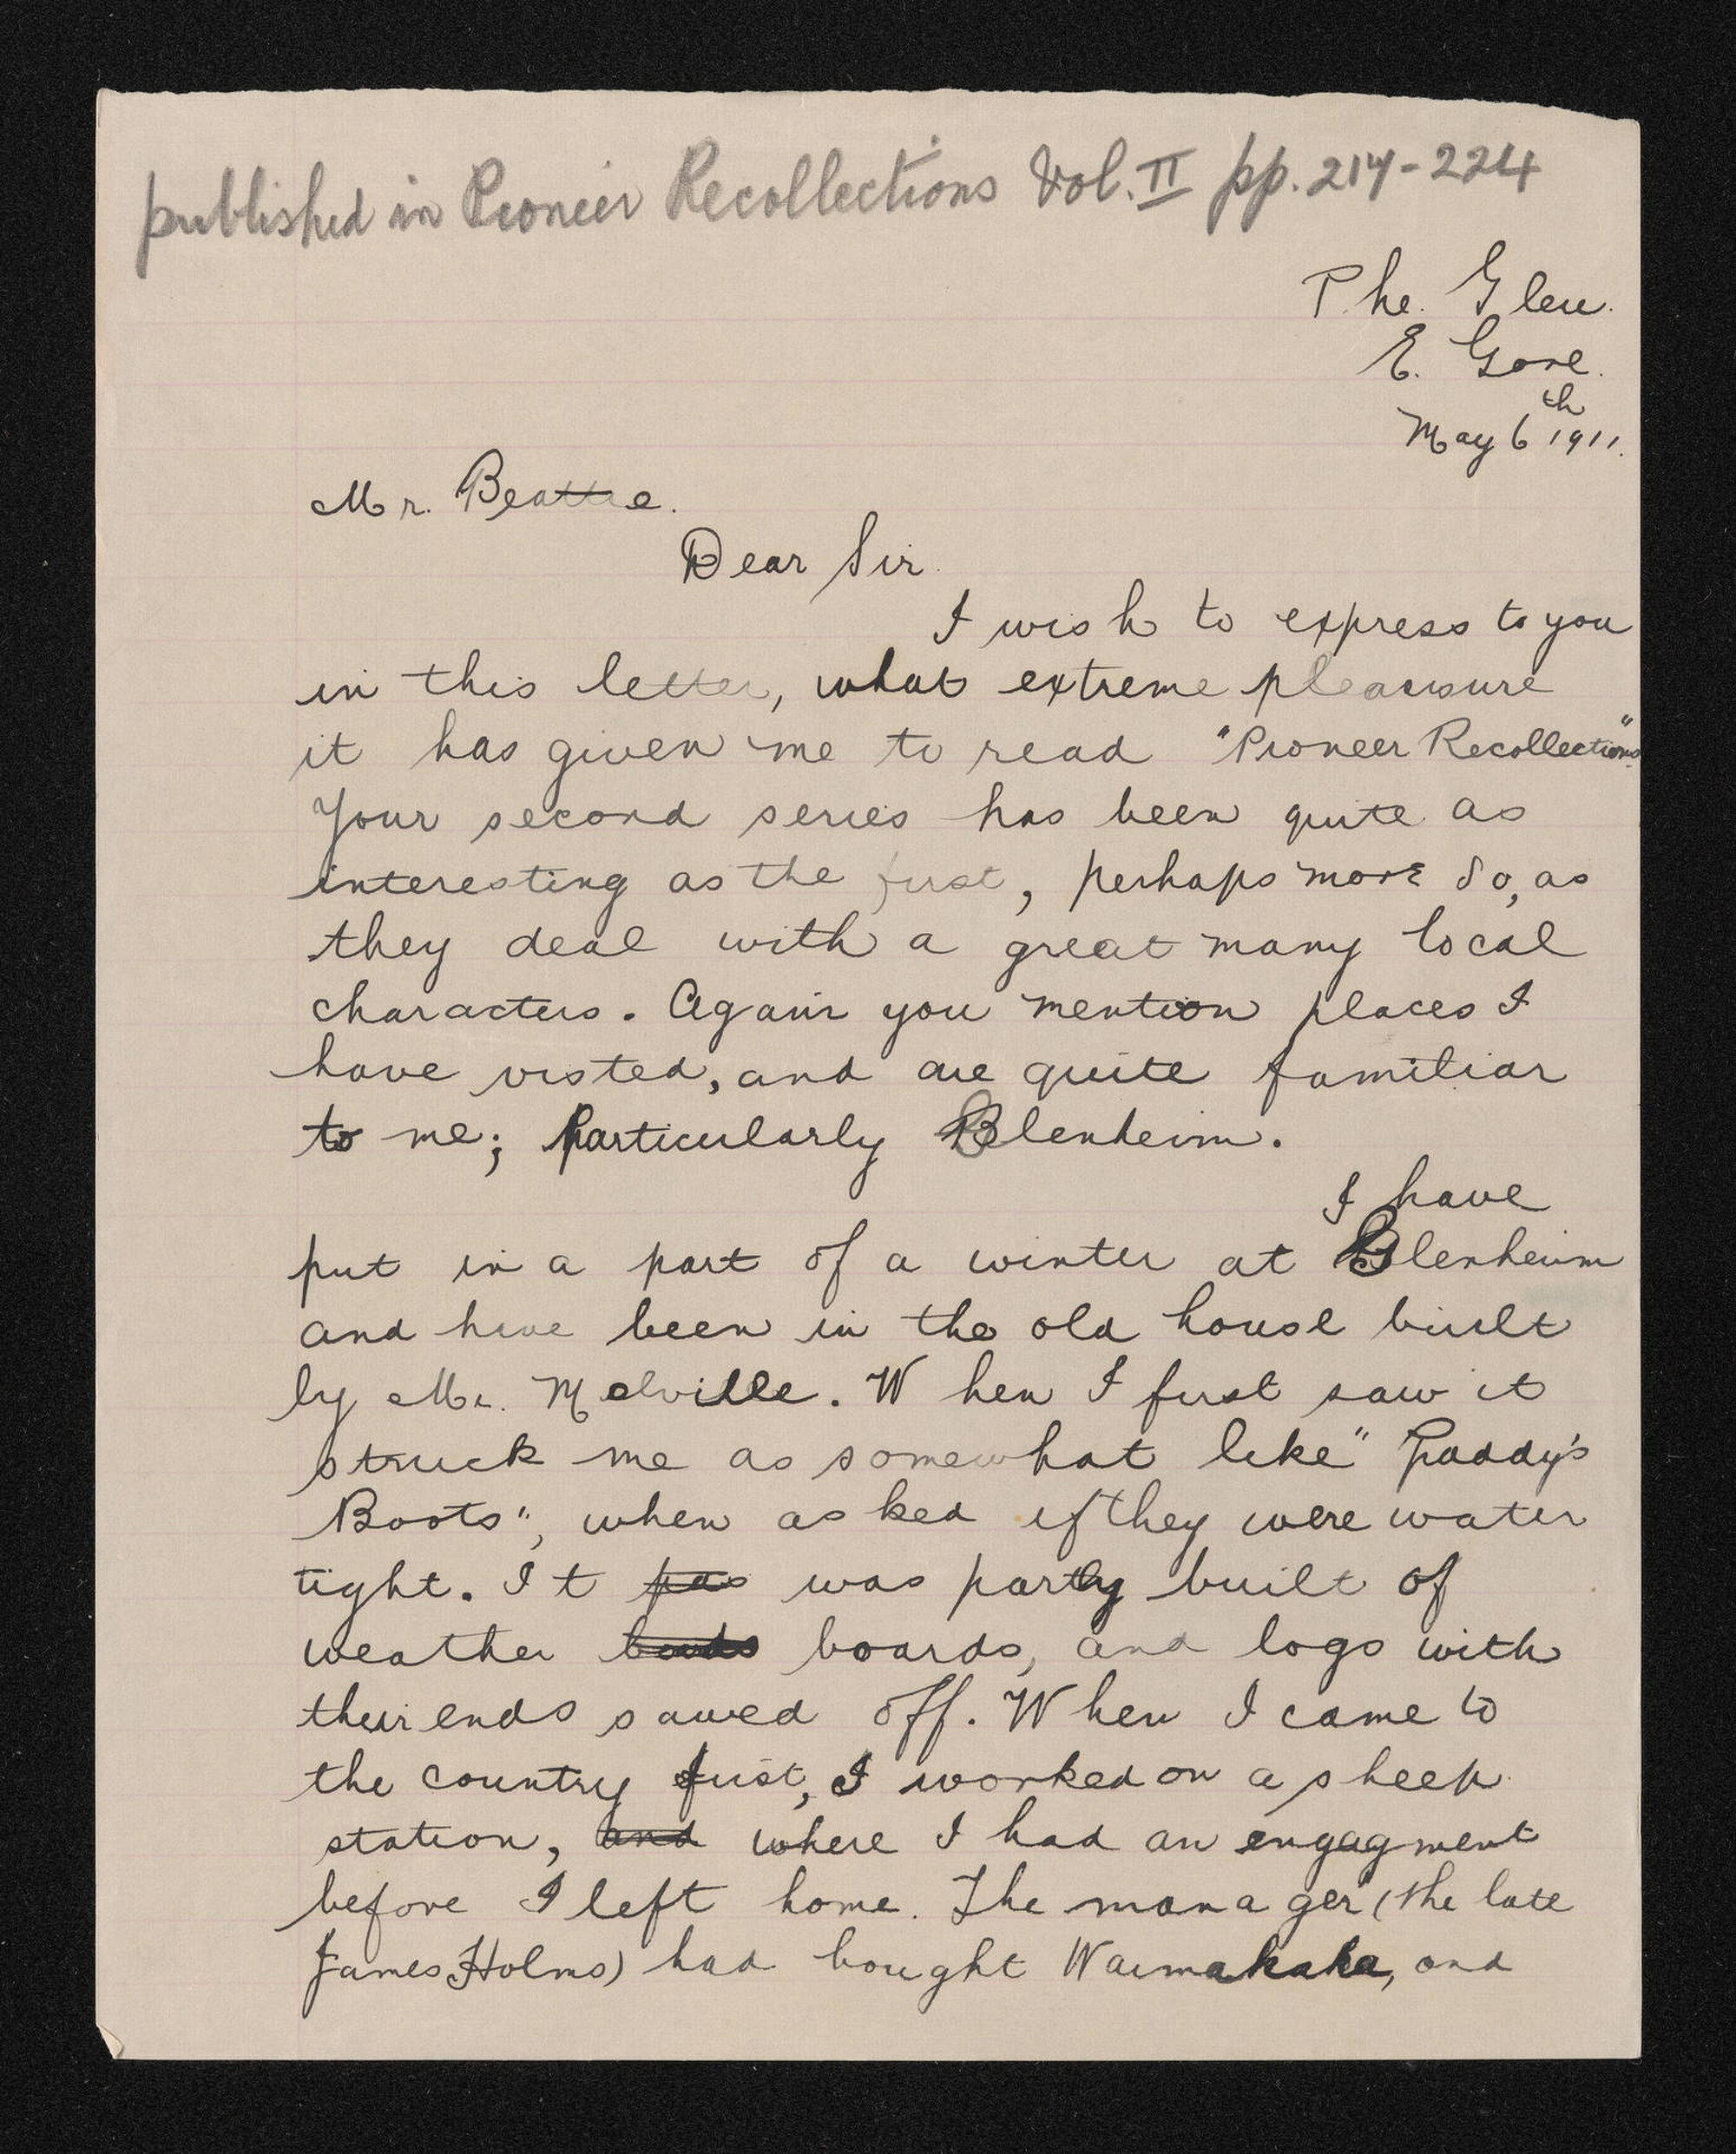 published in Pioneer Recollections Vol. II pp. 217-224
The. Glen.
E. Gore.
May 6th 1911.
Mr. Beattie.
Dear Sir.
I wish to express to you
in this letter, what extreme pleassure
it has given me to read "Pioneer Recollections"
Your second series has been quite as
interesting as the first, perhaps more so, as
they deal with a great many local
characters. Again you mention places I
have visted, and are quite familiar
to me; particularly Blenheim.
I have
put in a part of a winter at Blenheim
and have been in the old house built
by Mr. Melville. When I first saw it
struck me as somewhat like "Paddy's
Boots", when asked if they were water
tight. It pas was partly built of
weather boards, and logs with
their ends sawed off. When I came to
the country first, I worked on a sheep
station, and where I had an engagment
before I left home. The manager (the late
James Holms) had bought Waimakaka, and